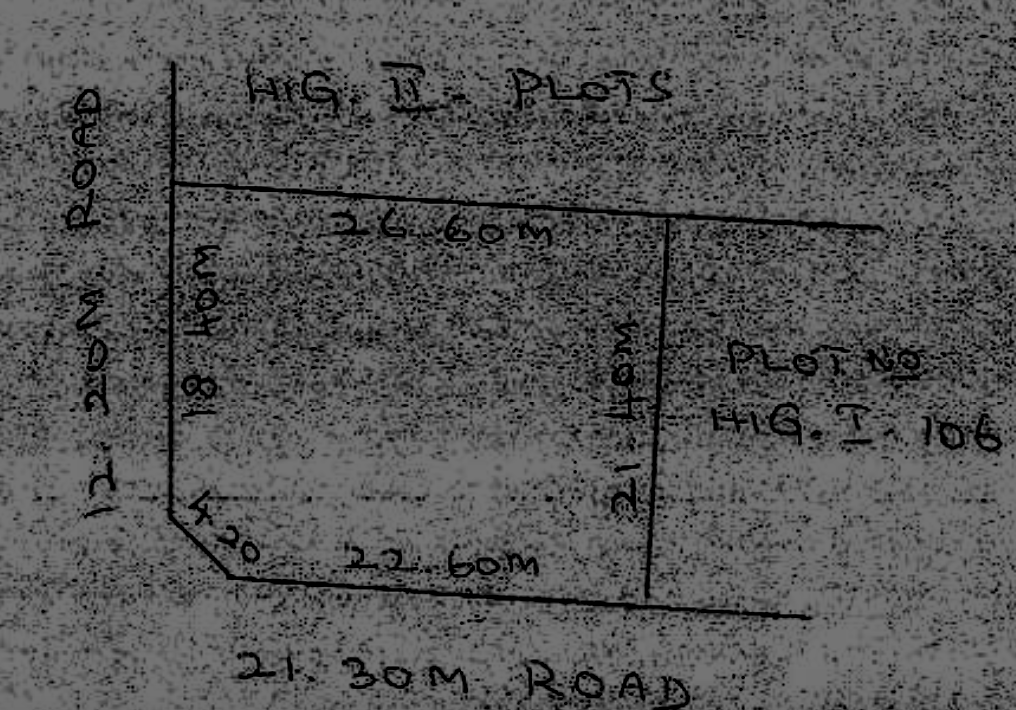 HIG. II - PLOTS
12. 20M. ROAD
26.60m
18 40m
21.40m
PLOT NO
HIG. I. 106
4 20
22.60m
21. 30M. ROAD